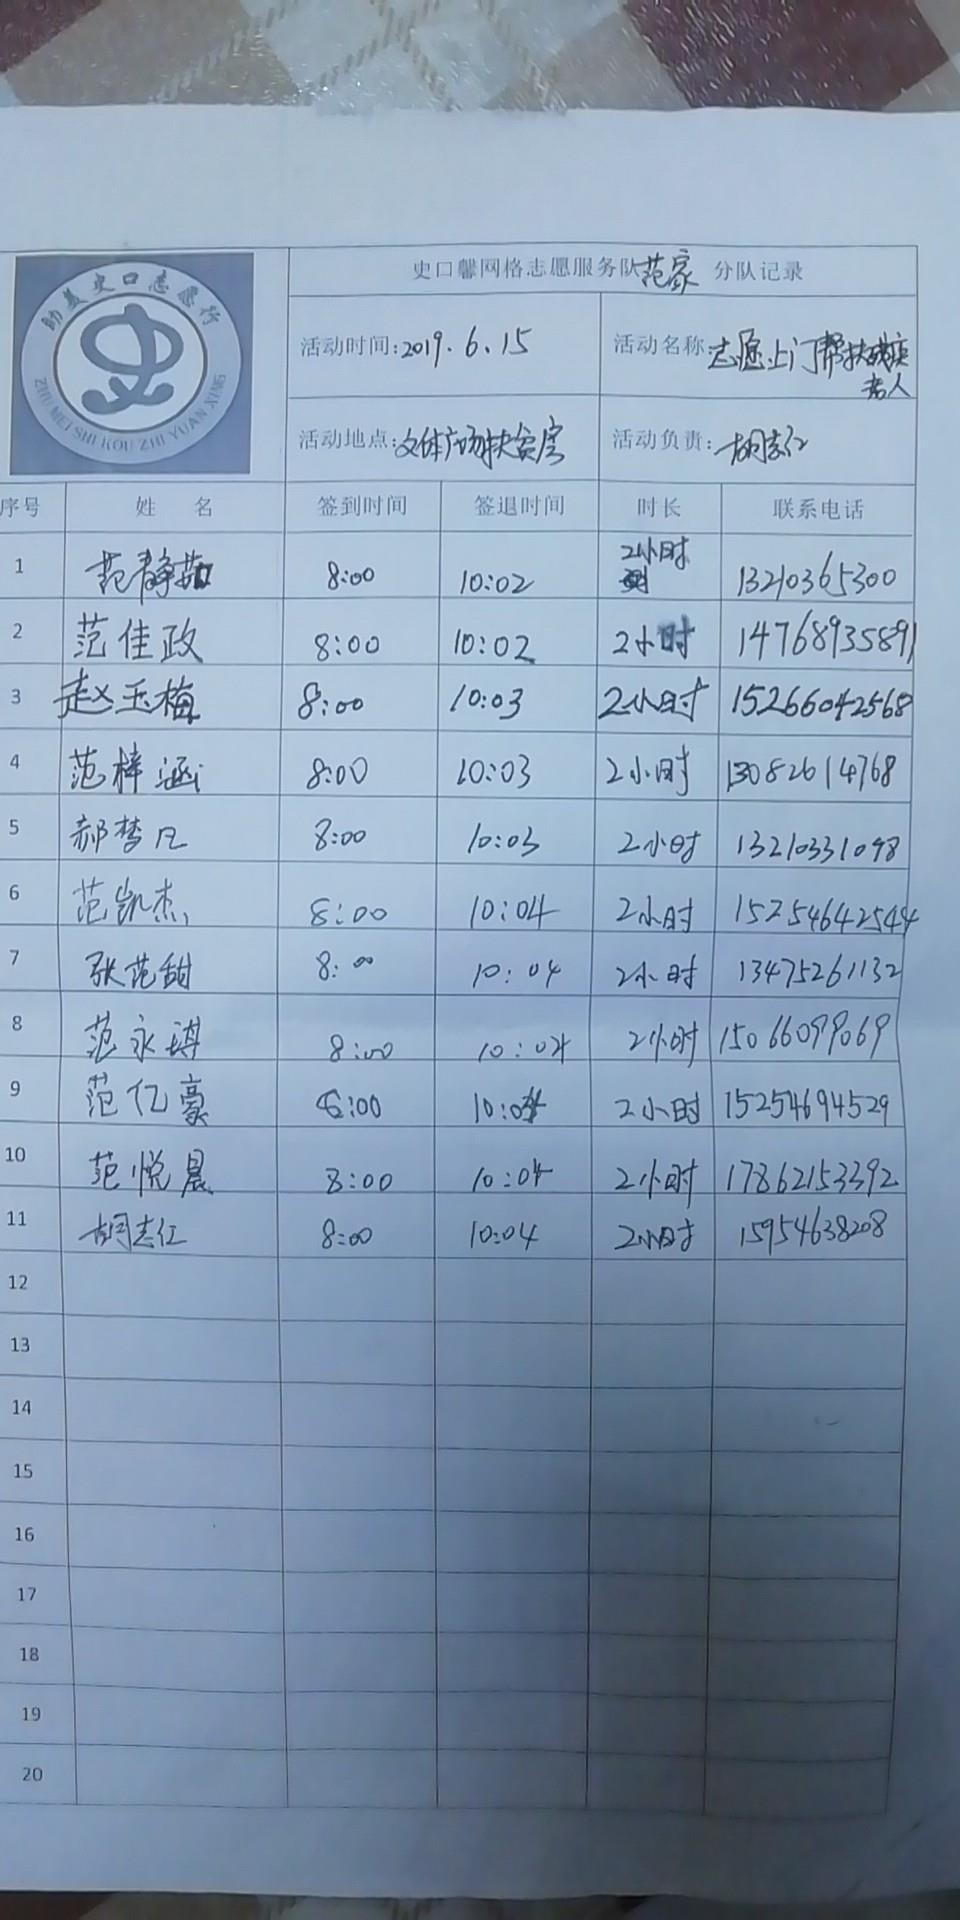 助美史口志愿行
ZHU MEI SHI KOU ZHI YUAN XING
史口馨网格志愿服务队范家 分队记录
活动时间:2019.6.15 活动名称:志愿上门帮扶残疾
老人
活动地点:文体广场扶贫房 活动负责:胡志红
序号 姓 名 签到时间 签退时间 时长 联系电话
1 范静茹 8:00 10:02 2小时 13210365300
2 范佳政 8:00 10:02 2小时 14768935891
3 赵玉梅 8:00 10:03 2小时 15266042568
4 范梓涵 8:00 10:03 2小时 13082614768
5 郝梦凡 8:00 10:03 2小时 13210331098
6 范凯杰 8:00 10:04 2小时 15254642544
7 张范甜 8:00 10:04 2小时 13475261132
8 范永琪 8:00 10:04 2小时 15066099069
9 范亿豪 8:00 10:04 2小时 15254694529
10 范悦晨 8:00 10:04 2小时 17862153392
11 胡志红 8:00 10:04 2小时 15954638208
12
13
14
15
16
17
18
19
20